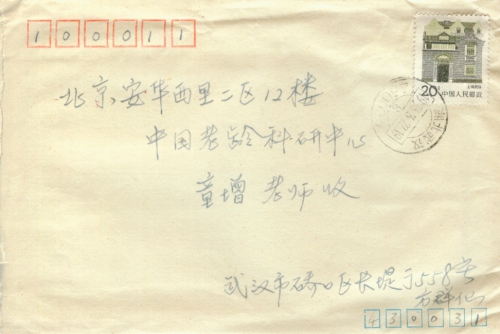 100011
上海民居
20分
中国人民邮政
北京安华西里二区12楼
中国老龄科研中心
童增 老师收
武汉市硚口区长堤街558号
430031